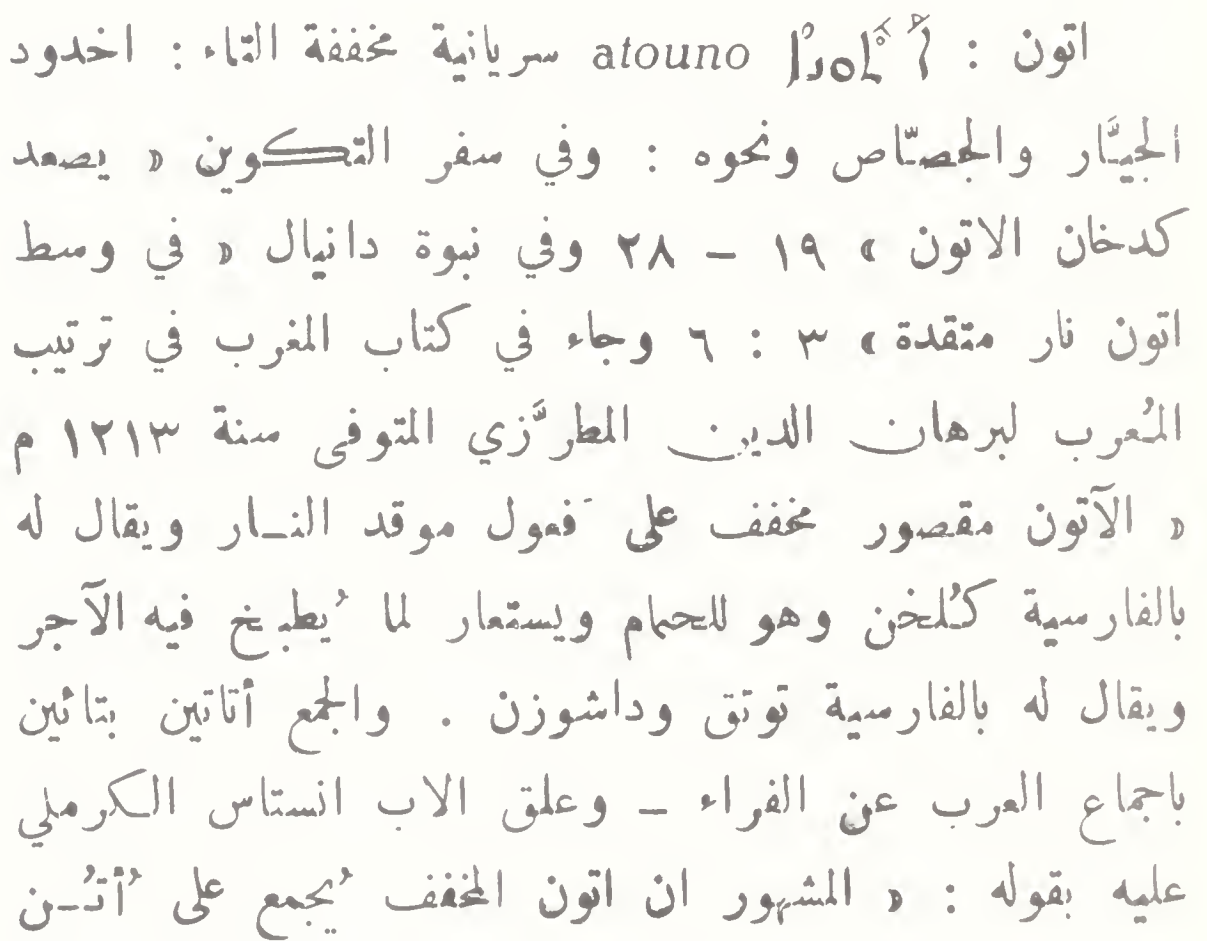 اتون : ܐܰܬܽܘܢܳܐ atouno سريانية مخففة التاء : اخدود
الجيَّار والجصّاص ونحوه : وفي سفر التكوين « يصعد
كدخان الاتون » ١٩ – ٢٨ وفي نبوة دانيال « في وسط
اتون نار متقدة » ٣ : ٦ وجاء في كتاب المغرب في ترتيب
المُعرب لبرهان الدين المطرَّزي المتوفى سنة ١٢١٣ م
« الآتون مقصور مخفف على َفعول موقد النار ويقال له
بالفارسية كُلخن وهو للحمام ويستعار لما يُطبخ فيه الآجر
ويقال له بالفارسية تونق وداشوزن . والجمع أتاتين بتائين
باجماع العرب عن الفراء – وعلق الاب انستاس الكرملي
عليه بقوله : « المشهور ان اتون المخفف يُجمع على أُتُن